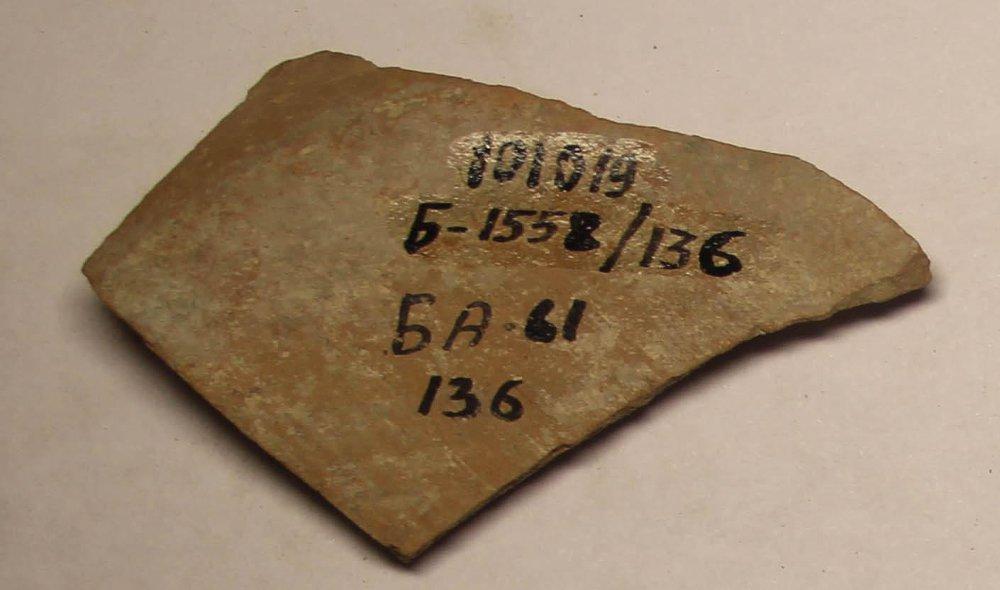 101019
Б-1558/136
БА-61
136